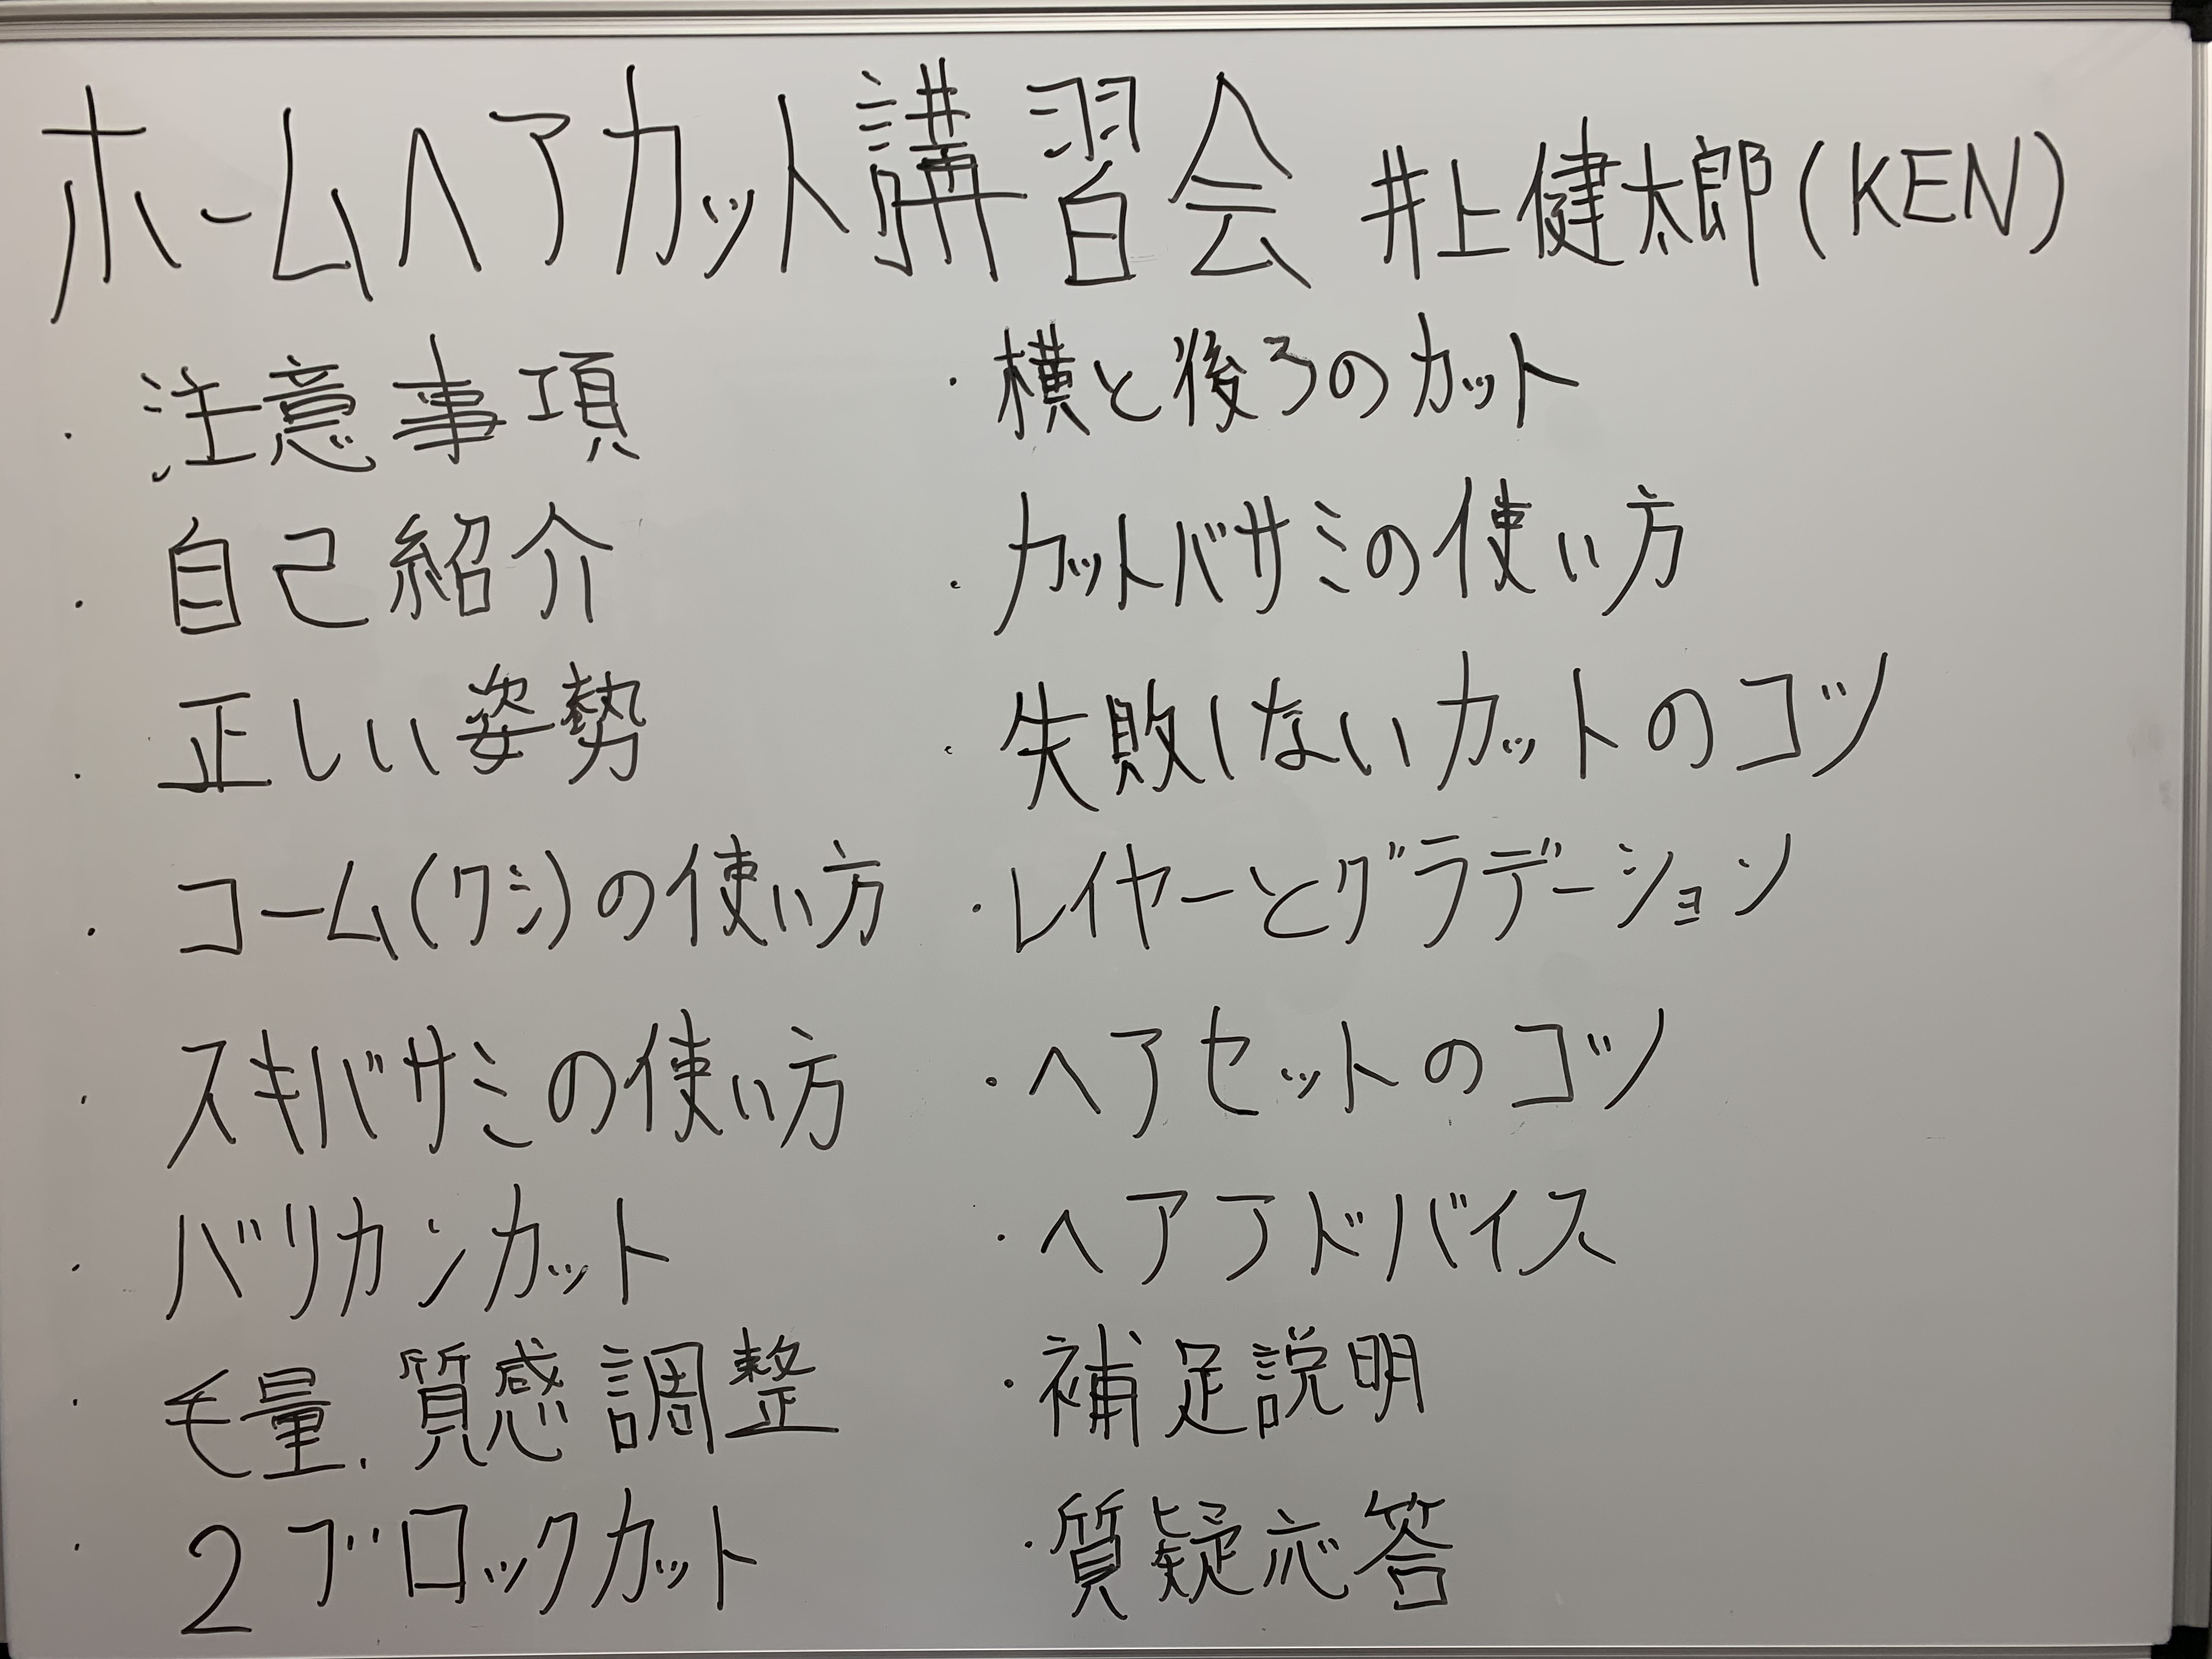 ホームヘアカット講習会 井上健太郎(KEN)
・注意事項
・自己紹介
・正しい姿勢
・コーム(クシ)の使い方
・スキバサミの使い方
・バリカンカット
・毛量.質感調整
・2ブロックカット
・横と後ろのカット
・カットバサミの使い方
・失敗しないカットのコツ
・レイヤーとグラデーション
・ヘアセットのコツ
・ヘアアドバイス
・補足説明
・質疑応答